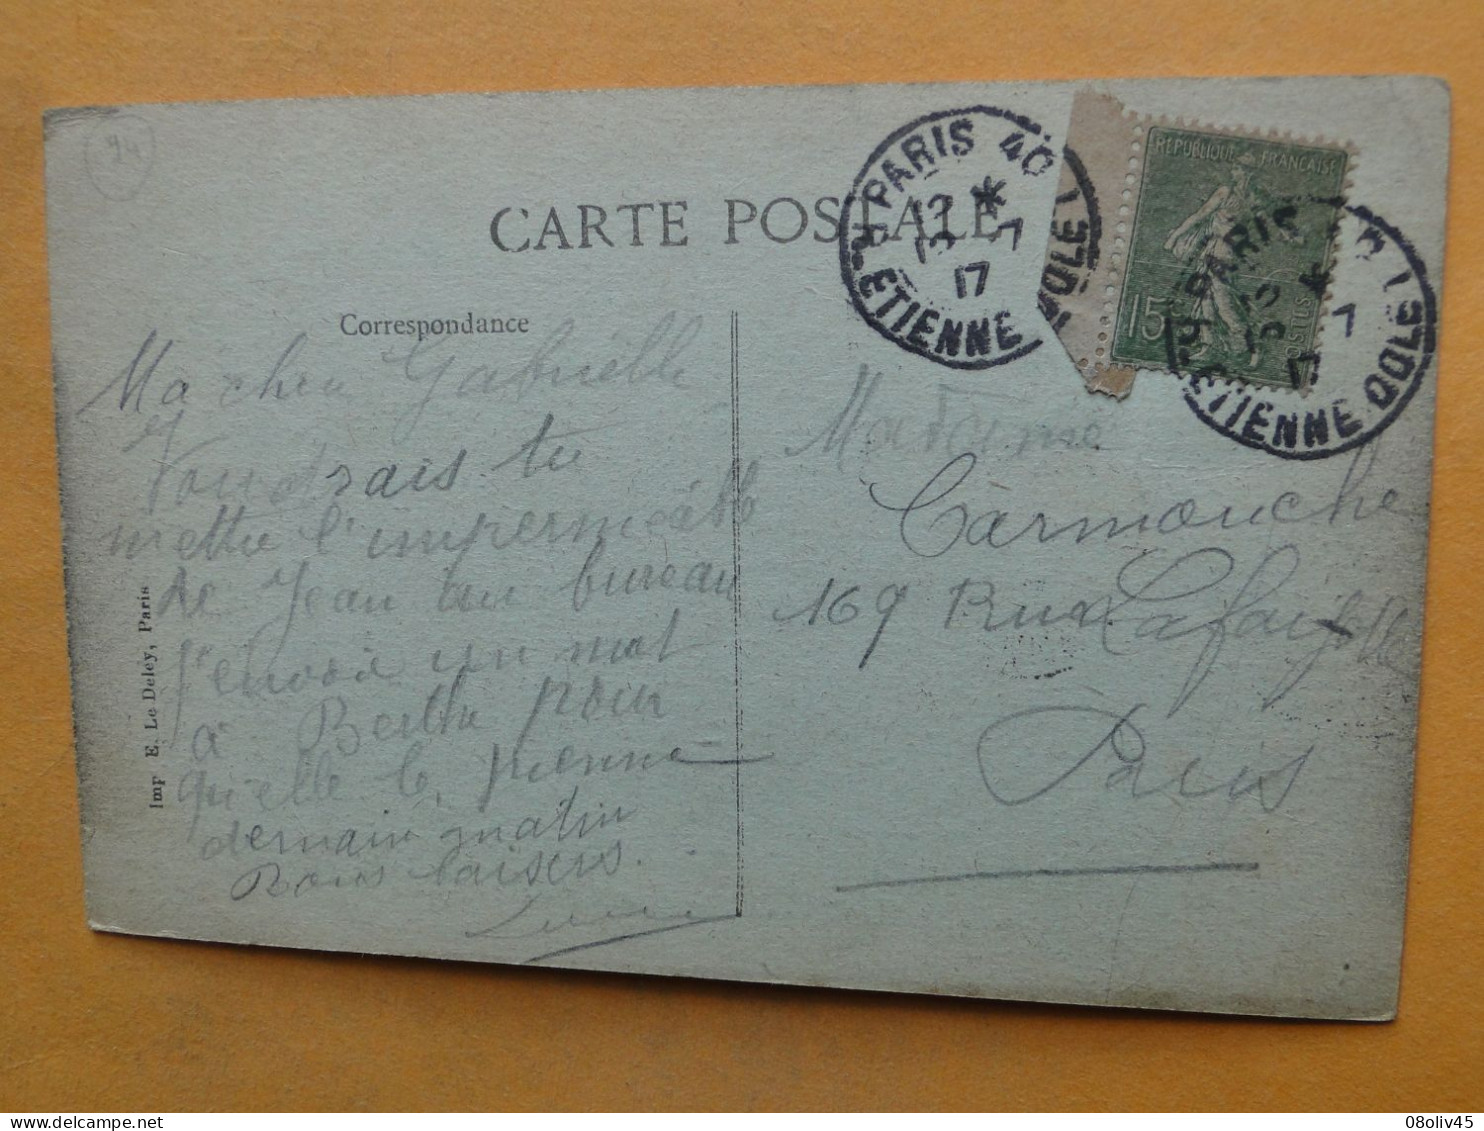 94
CARTE POSTALE
Correspondance
Ma chère Gabrielle
Voudrais tu
mettre l'imperméable
de Jean au bureau
j'envoie un mot
à Berthe pour
qu'elle le prenne
demain matin
Bons baisers.
Madame
Carmouche
169 Rue Lafayette
Paris
PARIS 40
12 *
13 7
17
R. ETIENNE DOLET
REPUBLIQUE FRANÇAISE
15c
POSTES
PARIS 40
12 *
13 7
17
R. ETIENNE DOLET
Imp E. Le Deley, Paris
08oliv45